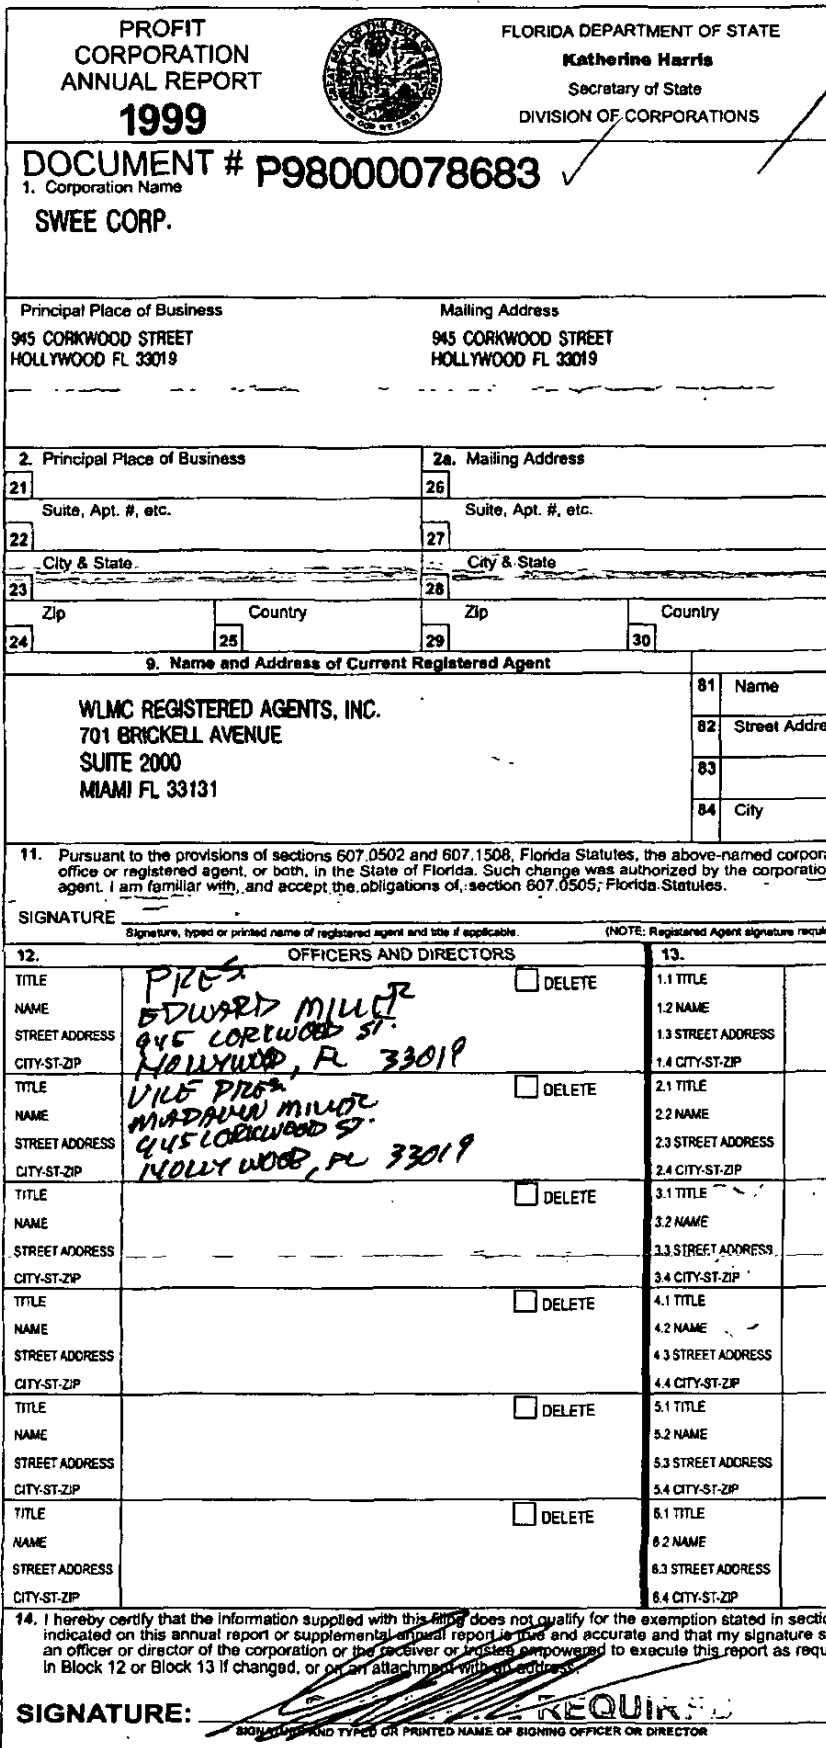 PROFIT
CORPORATION
ANNUAL REPORT
1999
GREAT SEAL OF THE STATE OF FLORIDA
IN GOD WE TRUST
FLORIDA DEPARTMENT OF STATE
Katherine Harris
Secretary of State
DIVISION OF CORPORATIONS
DOCUMENT # P98000078683
1. Corporation Name
SWEE CORP.
Principal Place of Business
Mailing Address
945 CORKWOOD STREET
HOLLYWOOD FL 33019
945 CORKWOOD STREET
HOLLYWOOD FL 33019
2. Principal Place of Business
2a. Mailing Address
21
26
Suite, Apt. #, etc.
Suite, Apt. #, etc.
22
27
City & State
City & State
23
28
Zip
Country
Zip
Country
24
25
29
30
9. Name and Address of Current Registered Agent
WLMC REGISTERED AGENTS, INC.
701 BRICKELL AVENUE
SUITE 2000
MIAMI FL 33131
81 Name
82 Street Addre
83
84 City
11. Pursuant to the provisions of sections 607.0502 and 607.1508, Florida Statutes, the above-named corpora
office or registered agent, or both, in the State of Florida. Such change was authorized by the corporatio
agent. I am familiar with, and accept the obligations of, section 607.0505, Florida Statutes.
SIGNATURE
Signature, typed or printed name of registered agent and title if applicable.
(NOTE: Registered Agent signature requi
12. OFFICERS AND DIRECTORS
13.
TITLE PRES. DELETE
NAME EDWARD MILLER
STREET ADDRESS 945 CORKWOOD ST.
CITY-ST-ZIP HOLLYWOOD, FL 33019
1.1 TITLE
1.2 NAME
1.3 STREET ADDRESS
1.4 CITY-ST-ZIP
TITLE VICE PRES. DELETE
NAME MILLER
STREET ADDRESS 945 CORKWOOD ST.
CITY-ST-ZIP HOLLYWOOD, FL 33019
2.1 TITLE
2.2 NAME
2.3 STREET ADDRESS
2.4 CITY-ST-ZIP
TITLE DELETE
NAME
STREET ADDRESS
CITY-ST-ZIP
3.1 TITLE
3.2 NAME
3.3 STREET ADDRESS
3.4 CITY-ST-ZIP
TITLE DELETE
NAME
STREET ADDRESS
CITY-ST-ZIP
4.1 TITLE
4.2 NAME
4.3 STREET ADDRESS
4.4 CITY-ST-ZIP
TITLE DELETE
NAME
STREET ADDRESS
CITY-ST-ZIP
5.1 TITLE
5.2 NAME
5.3 STREET ADDRESS
5.4 CITY-ST-ZIP
TITLE DELETE
NAME
STREET ADDRESS
CITY-ST-ZIP
6.1 TITLE
6.2 NAME
6.3 STREET ADDRESS
6.4 CITY-ST-ZIP
14. I hereby certify that the information supplied with this filing does not qualify for the exemption stated in sectio
indicated on this annual report or supplemental annual report is true and accurate and that my signature s
an officer or director of the corporation or the receiver or trustee empowered to execute this report as requ
in Block 12 or Block 13 if changed, or on an attachment with an address.
SIGNATURE: REQUIRED
SIGNATURE AND TYPED OR PRINTED NAME OF SIGNING OFFICER OR DIRECTOR